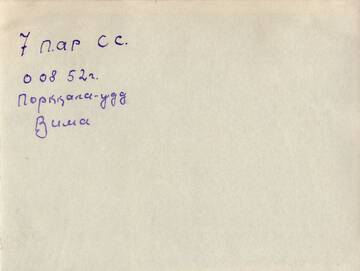 7 пар сс.
0 08 52г.
Порккала-удд
Зима